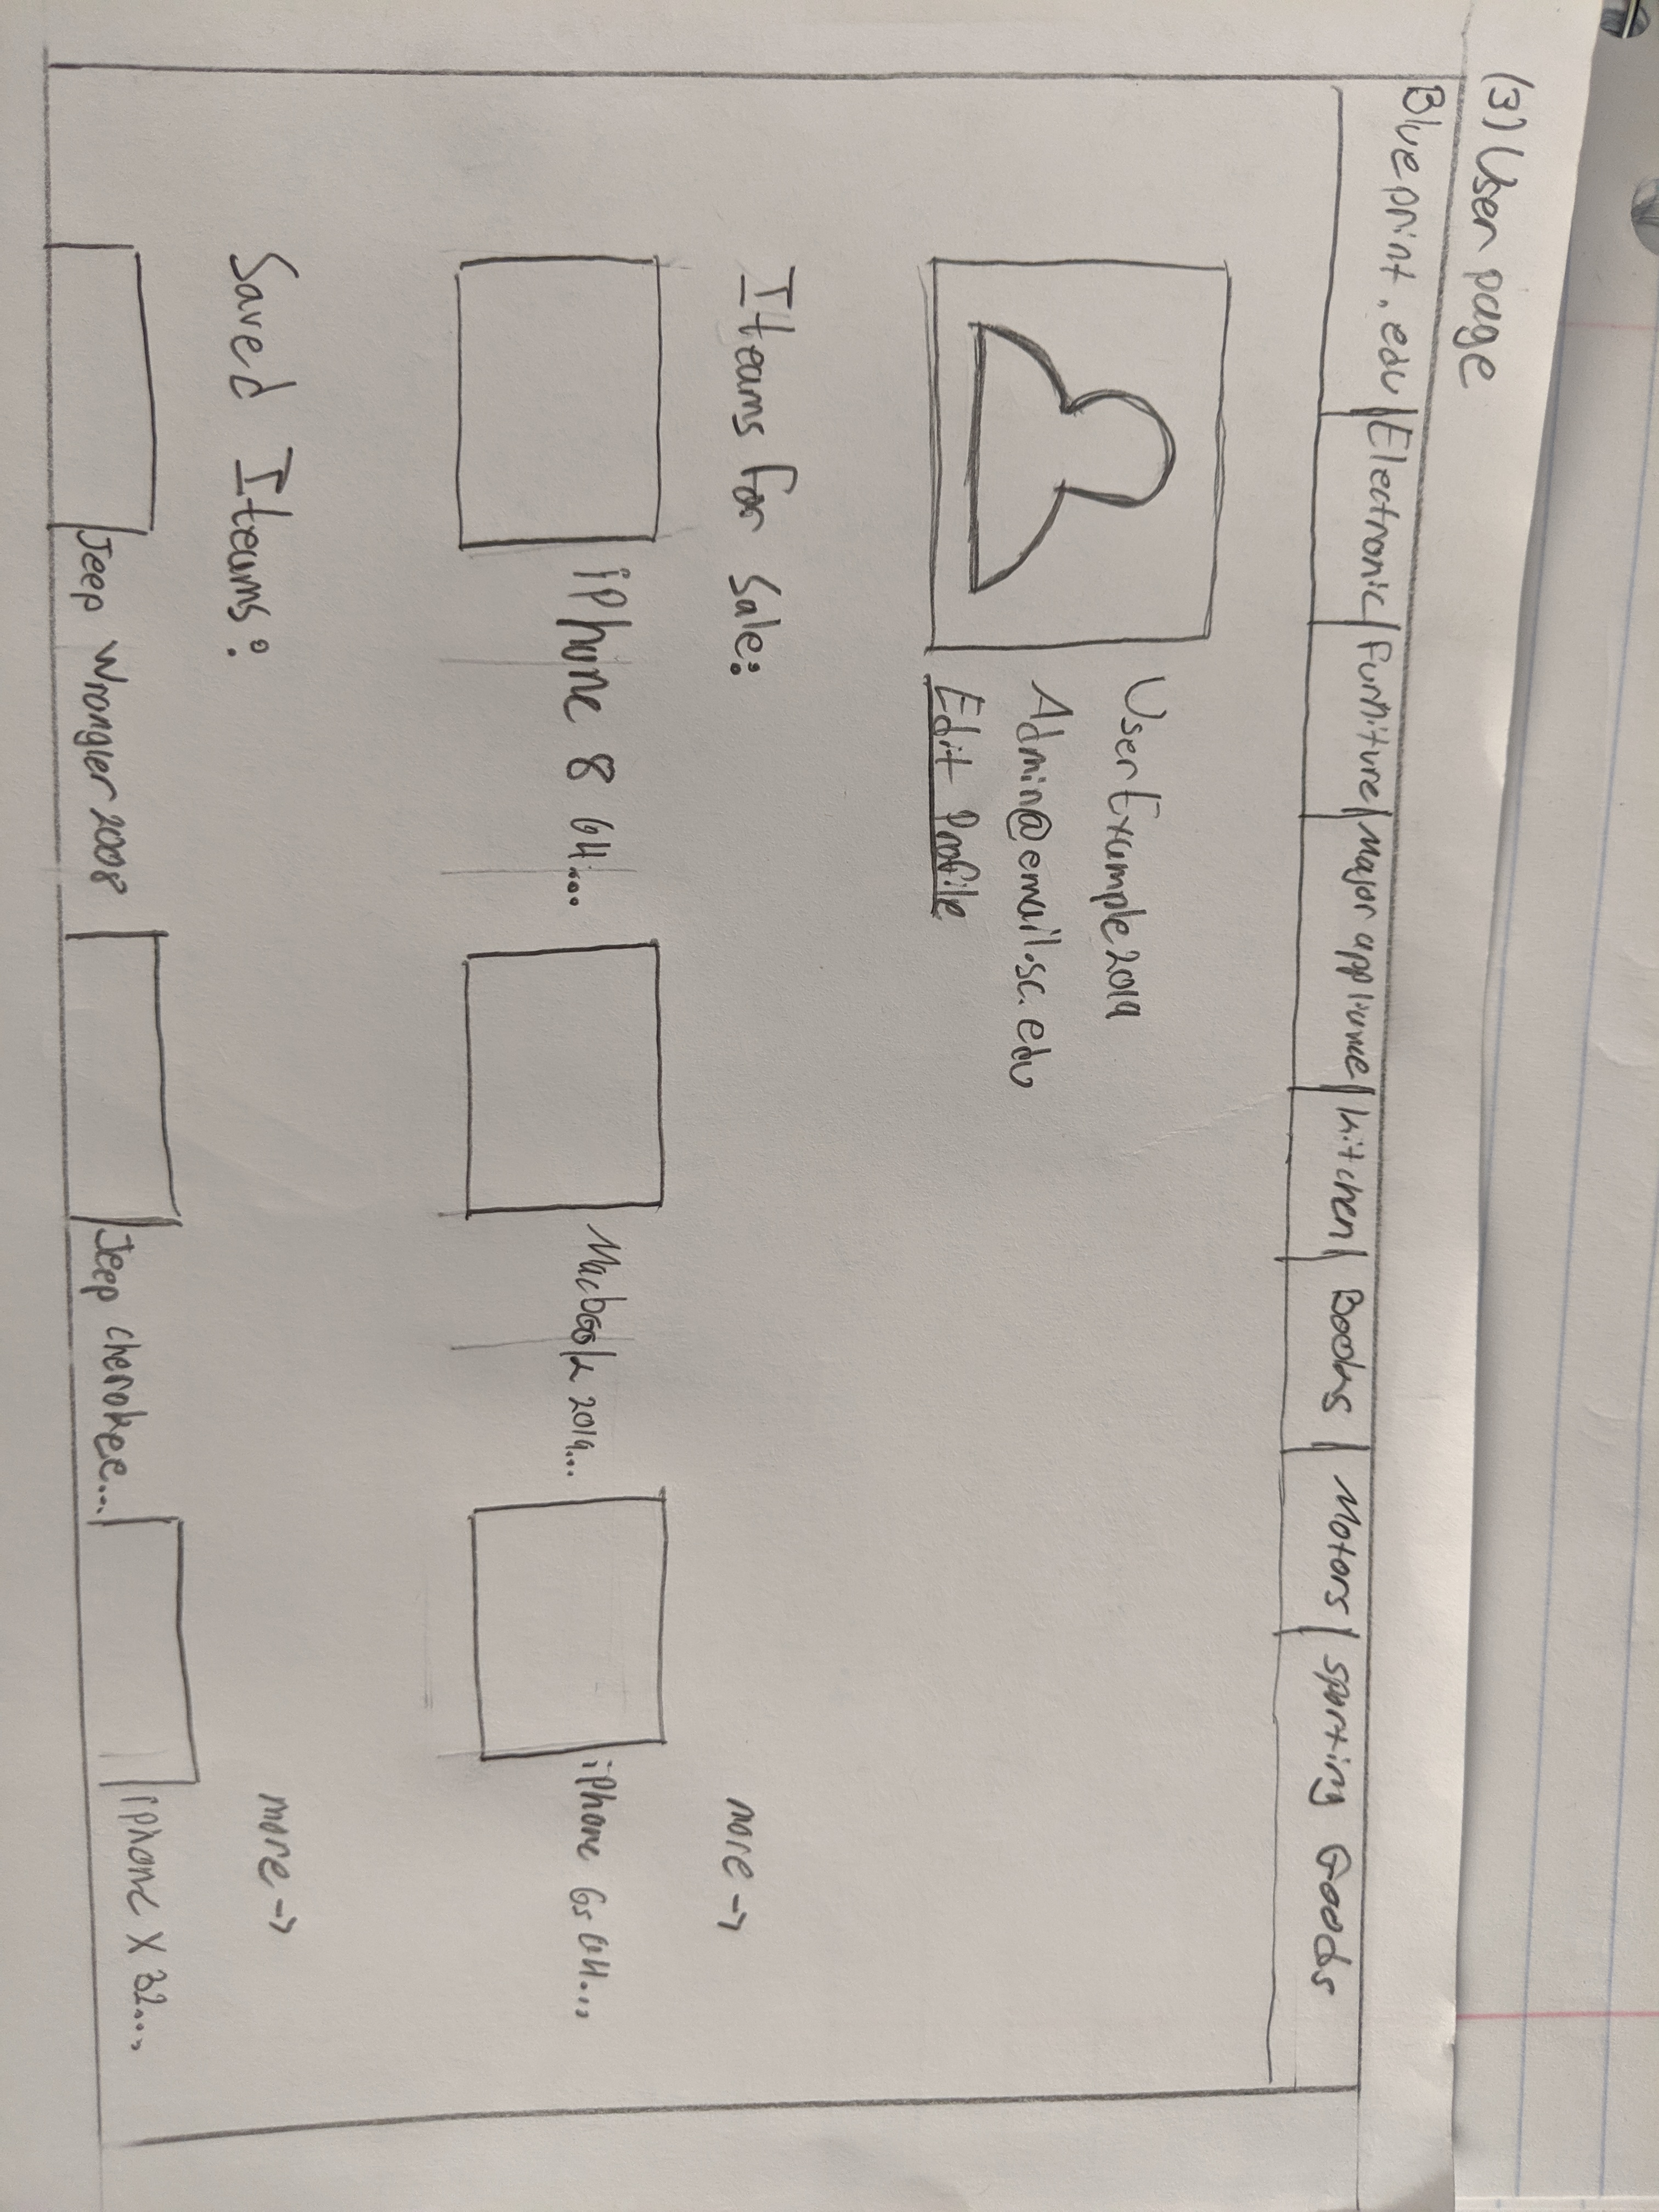 (3) User page
Blueprint.edu Electronic Furniture Major appliance Kitchen Books Motors Sporting Goods
UserExample2019
Admin@email.sc.edu
Edit Profile
Iteams for Sale:
more ->
iPhone 8 64...
Macbook 2019...
iPhone 6s 64...
Saved Iteams:
more ->
Jeep Wrangler 2008
Jeep Cherokee...
iphone X 32...